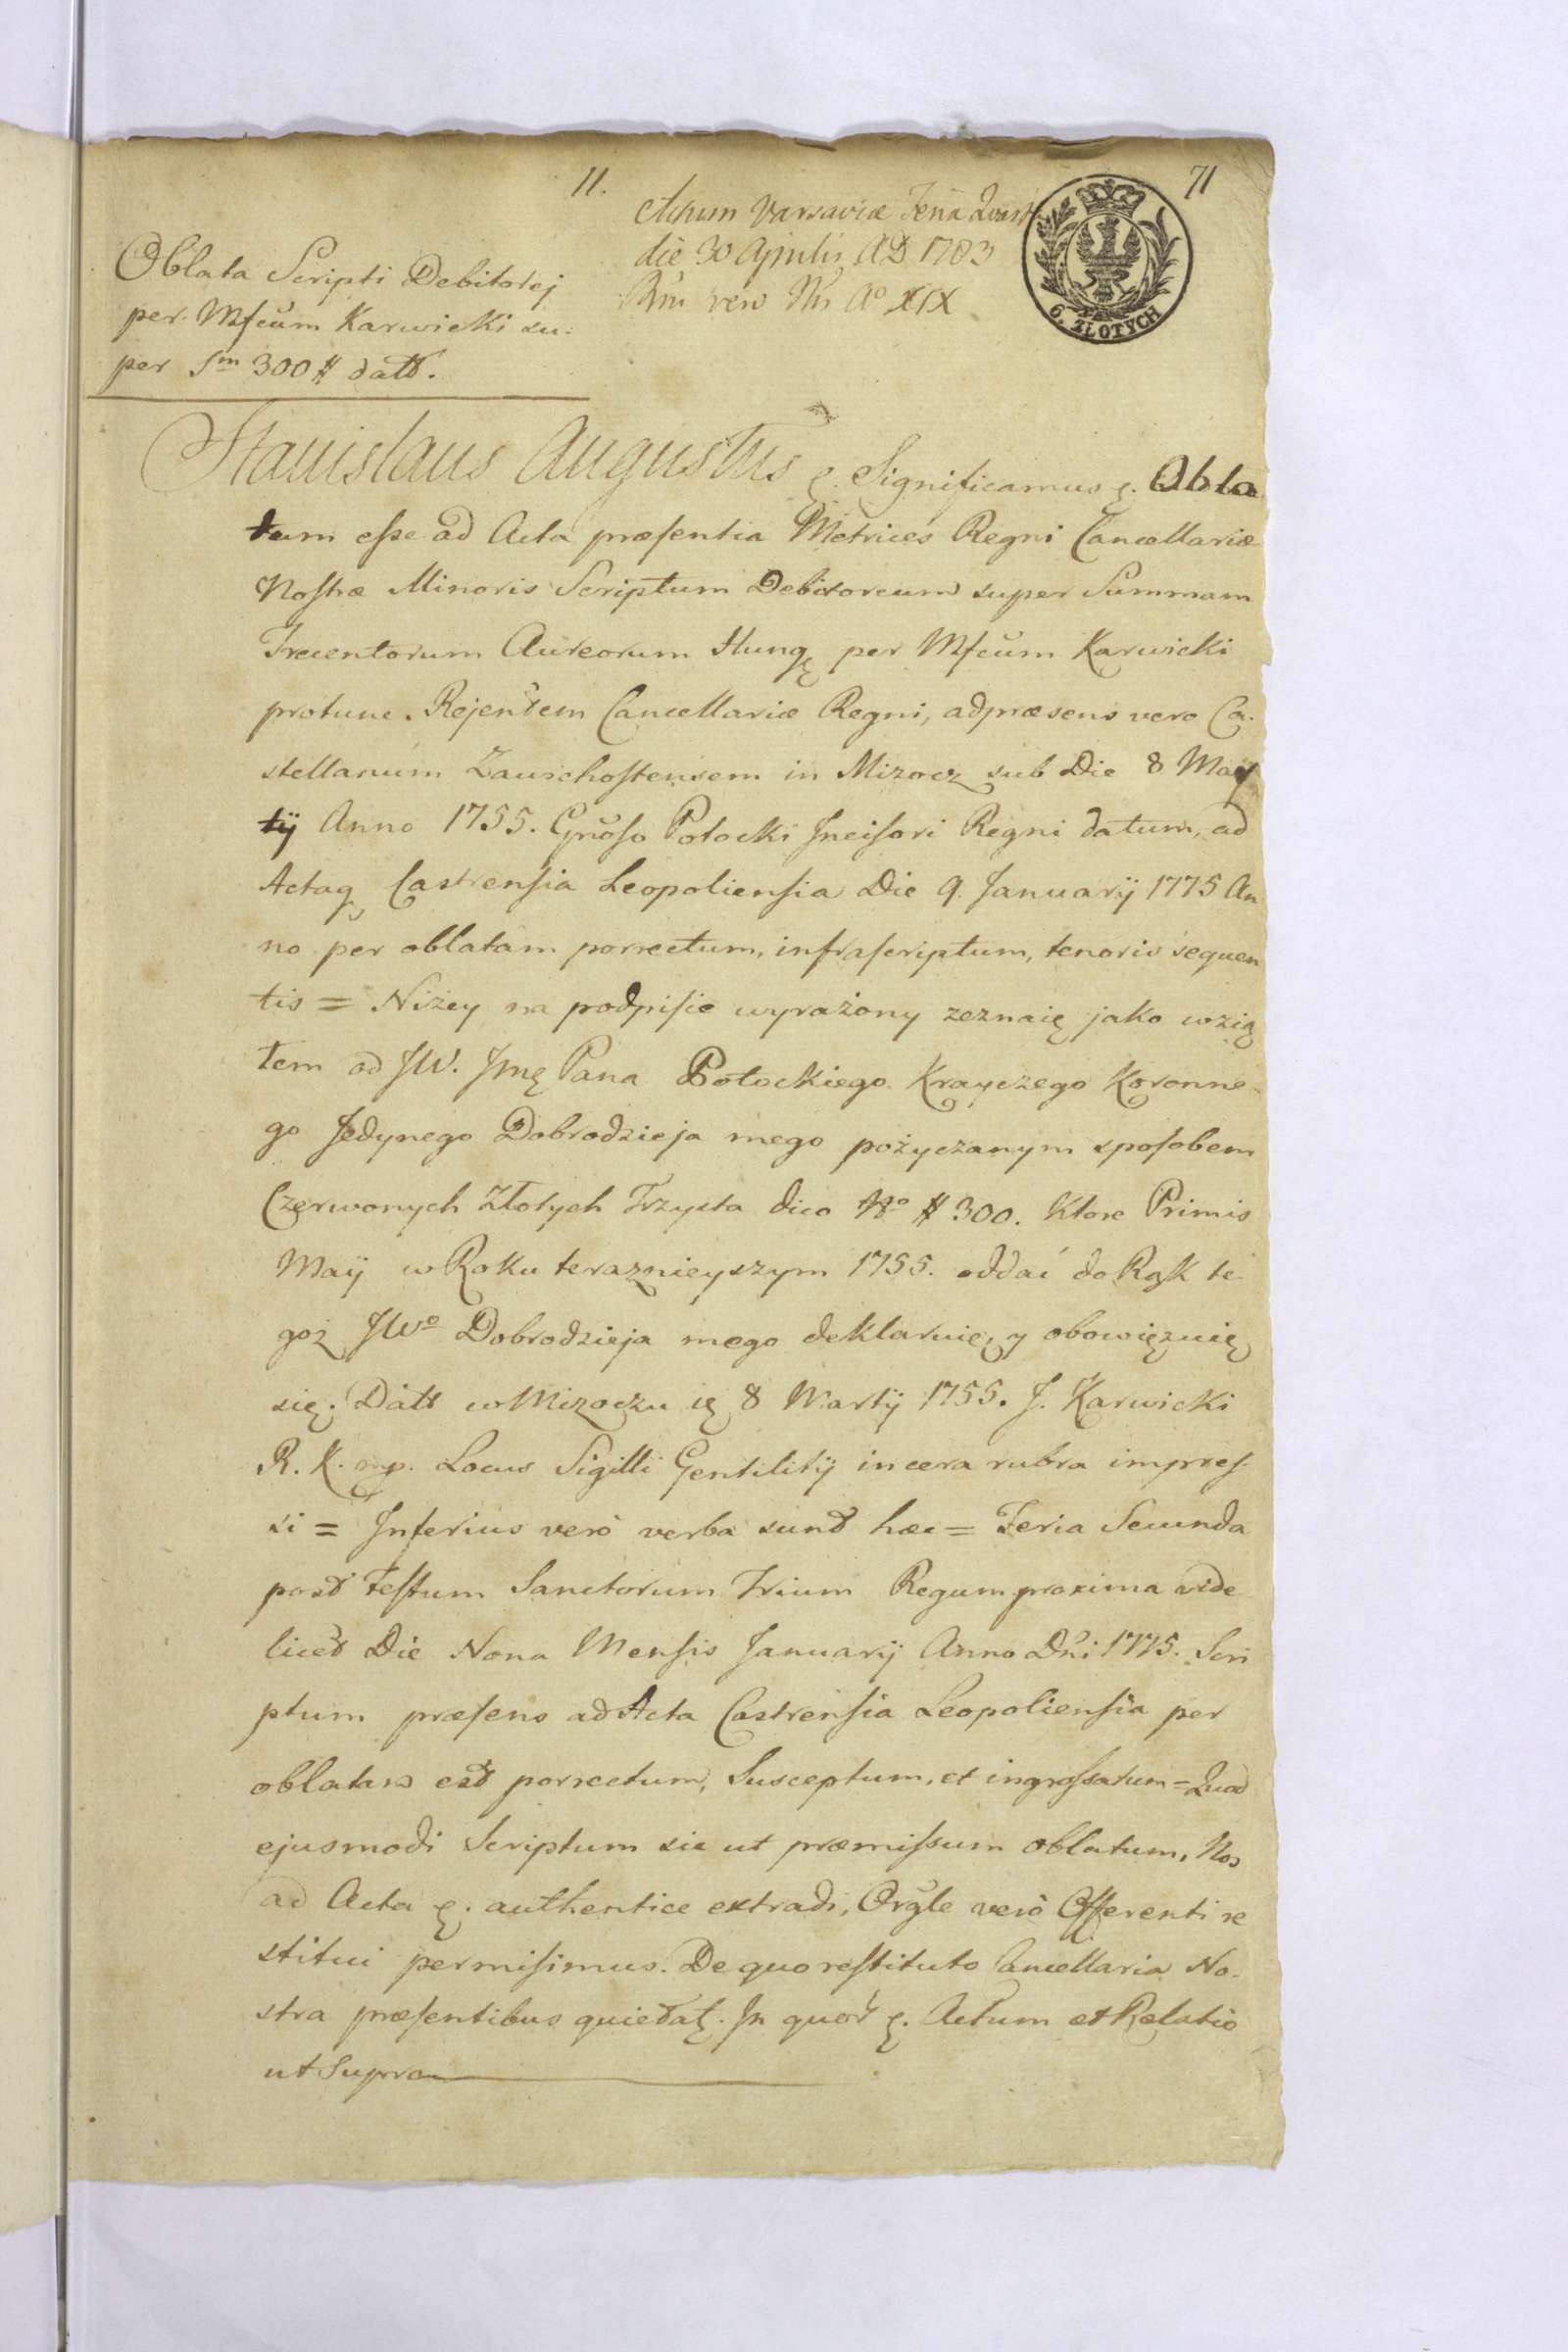 11.
71
Actum Varsaviæ Feria Quarta
die 30 Aprilis AD 1783
Rni vero Nri Aº XIX
6. ZŁOTYCH
Oblata Scripti Debitorej
per Mfcum Karwicki su:
per Sm 300 # datt.
Stanislaus Augustus ę. Significamus ę. Obla
tum esse ad Acta præsentia Metrices Regni Cancellariæ
Nostræ Minoris Scriptum Debitoreum super Summam
Trecentorum Aureorum Hungę per Mfcum Karwicki
protunc. Rejentem Cancellariæ Regni, adpræsens vero Ca.
stellanum Zawichostensem in Mizocz sub Die 8 Mar
tÿ Anno 1755. Gnoso Potocki Incisori Regni datum, ad
Actaq Castrensia Leopoliensia Die 9. Januarÿ 1775 An
no per oblatam porrectum, infrascriptum, tenoris sequen
tis = Niżey na podpisie wyrażony zeznaię jako wzią
łem od JW. Jmę Pana Potockiego Krayczego Koronne
go Jedynego Dobrodzieja mego pożyczanym sposobem
Czerwonych Złotych Trzysta dico Nº # 300. Ktore Primis
Maÿ w Roku teraznieyszym 1755. oddać do Rąk te
goż JWº Dobrodzieja mego deklaruię, y obowięzuię
się. Datt w Mizoczu ię 8 Martÿ 1755. J. Karwicki
R. K. mp. Locus Sigilli Gentilitÿ in cera rubra impres-
si = Inferius verò verba sunt hæc = Feria Secunda
post Festum Sanctorum Trium Regum proxima vide
licet Die Nona Mensis Januarÿ Anno Dni 1775. Scri
ptum præsens ad Acta Castrensia Leopoliensia per
oblatam est porrectum, Susceptum, et ingrossatum = Quod
ejusmodi Scriptum sic ut præmissum oblatum, Nos
ad Acta ę. authentice extradi, Orgle verò Offerenti re
stitui permisimus. De quo restituto Cancellaria No.
stra præsentibus quietatę. In quor ę. Actum et Relatio
ut Supra